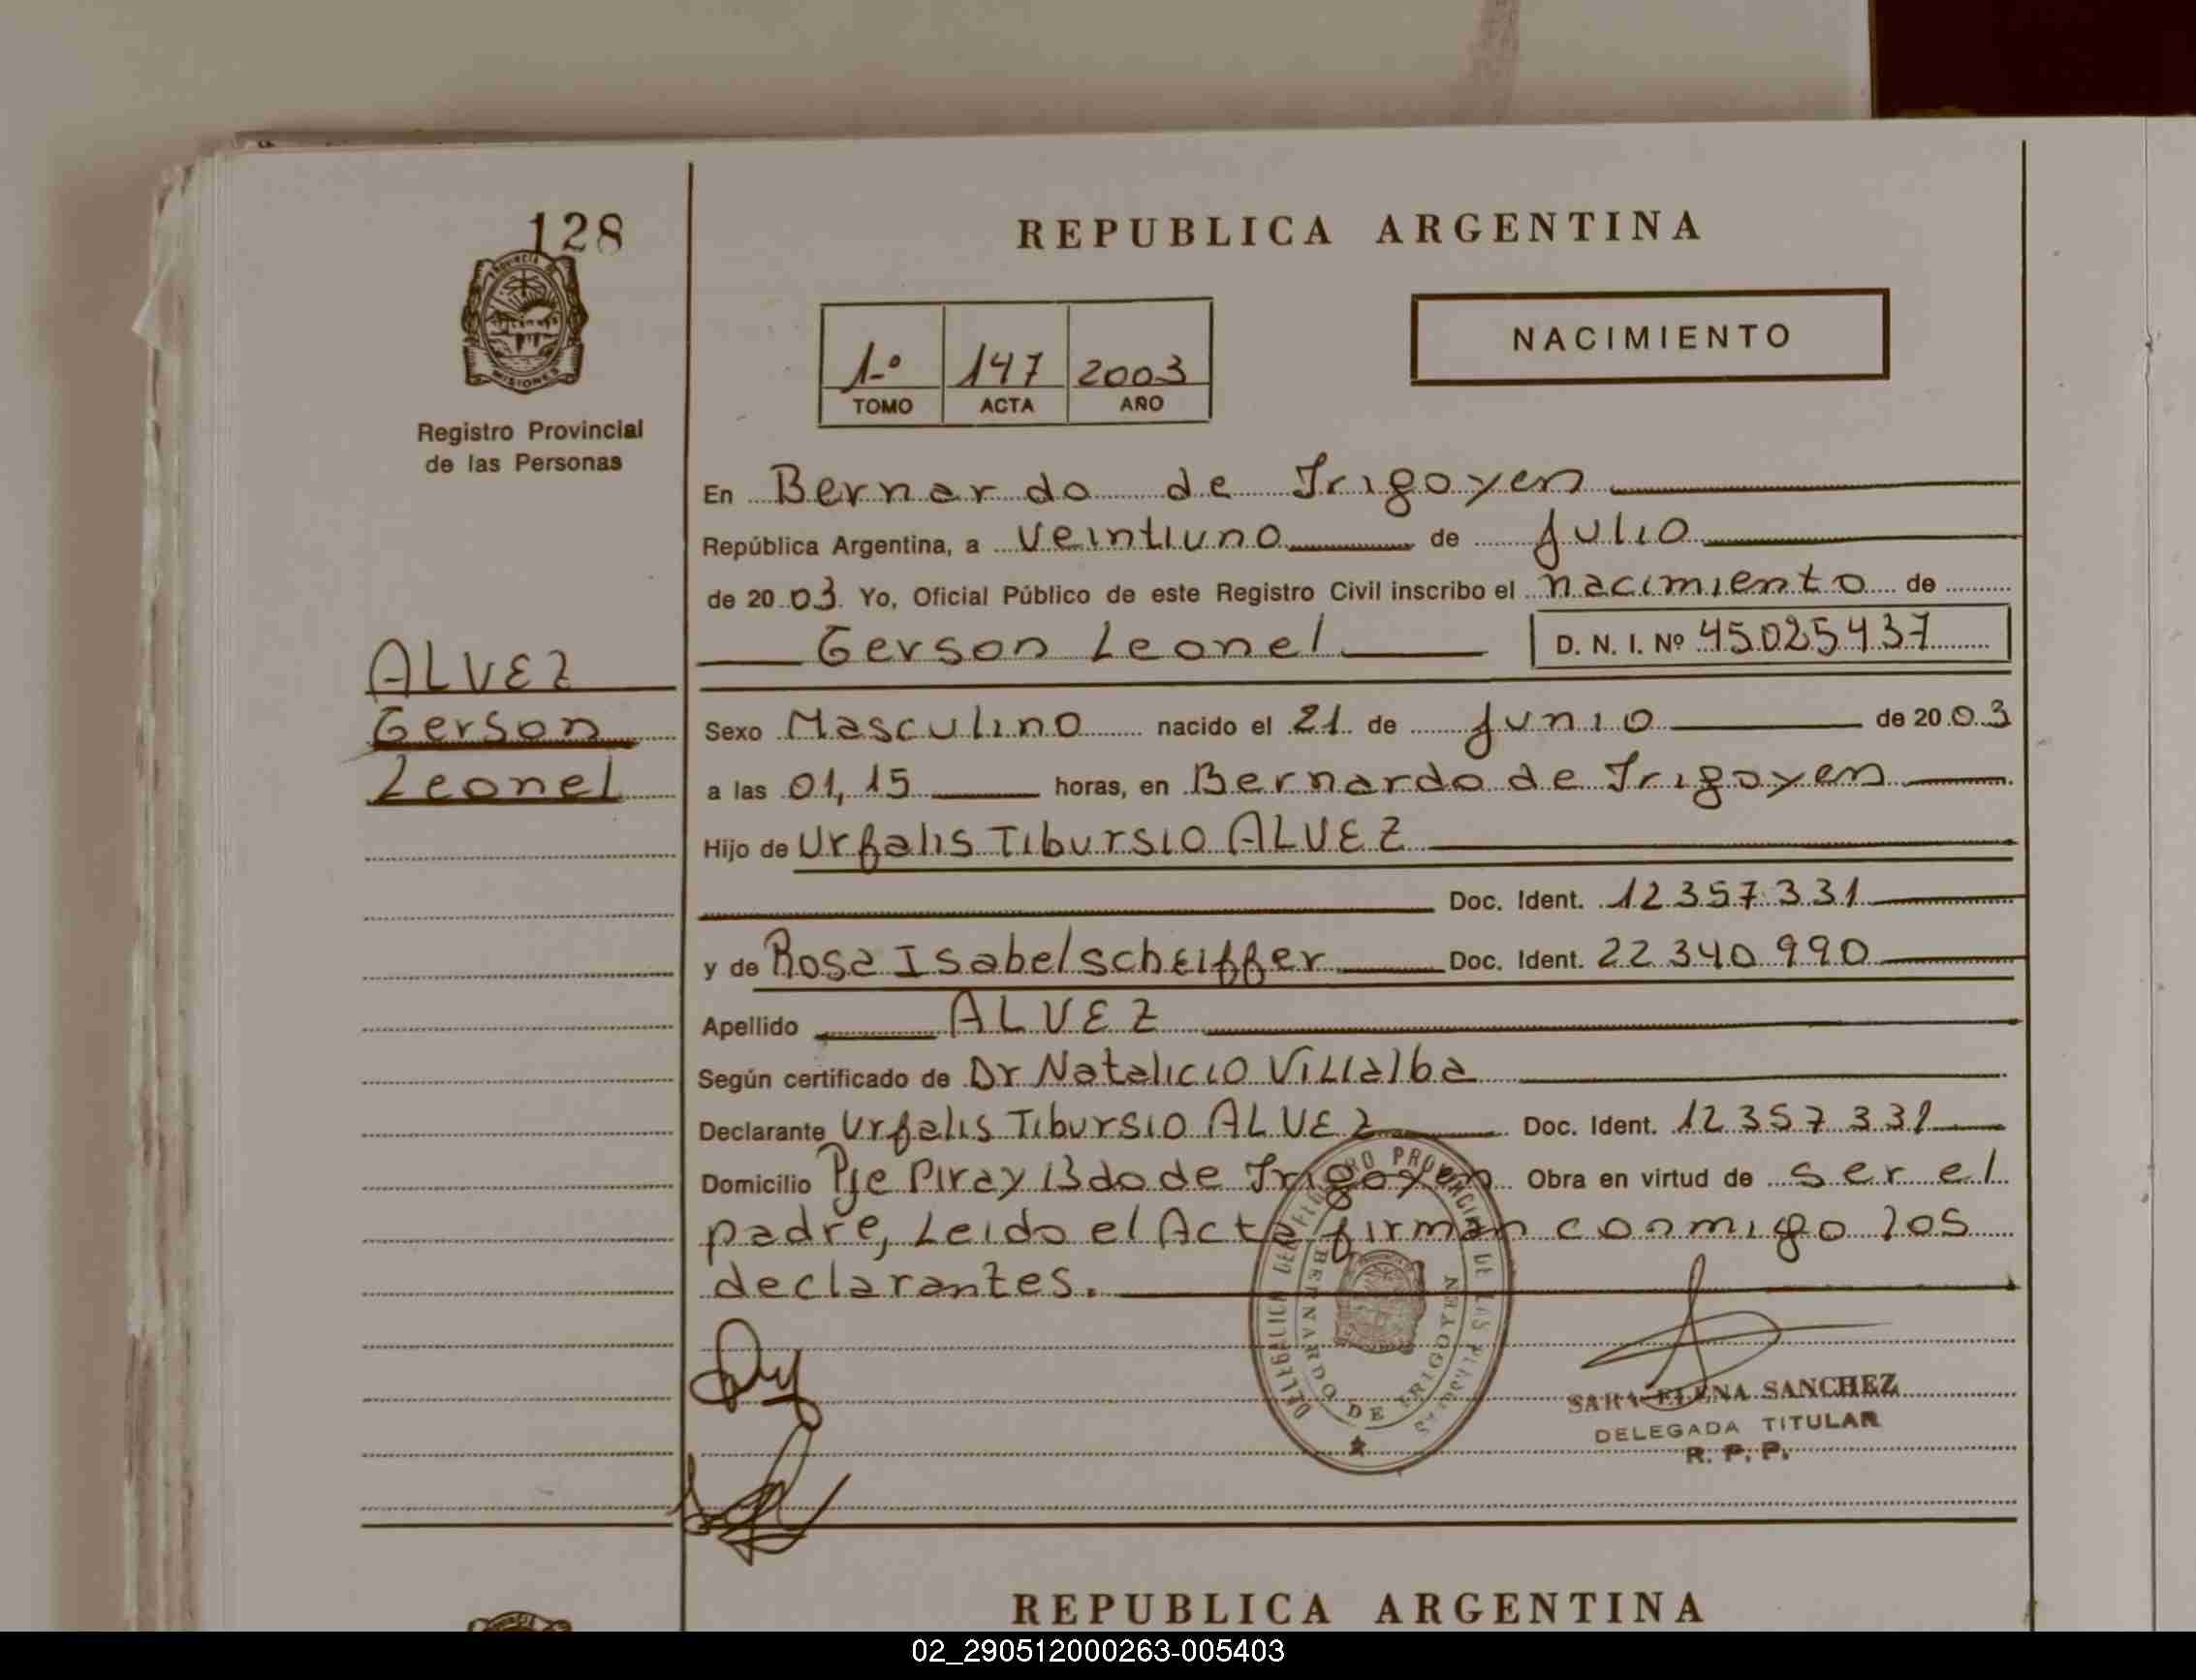 128
PROVINCIA DE
MISIONES
Registro Provincial
de las Personas
REPUBLICA ARGENTINA
1º 147 2003
TOMO ACTA AÑO
NACIMIENTO
En Bernardo de Irigoyen
República Argentina, a veintiuno de Julio
de 2003. Yo, Oficial Público de este Registro Civil inscribo el nacimiento de
Gerson Leonel D. N. I. Nº 45.025.437
ALVEZ
Gerson
Leonel
Sexo Masculino nacido el 21 de Junio de 2003
a las 01,15 horas, en Bernardo de Irigoyen
Hijo de Urfalis Tibursio ALVEZ
Doc. Ident. 12.357.331
y de Rosa Isabel scheiffer Doc. Ident. 22 340 990
Apellido ALVEZ
Según certificado de Dr Natalicio Villalba
Declarante Urfalis Tibursio ALVEZ Doc. Ident. 12 357 331
Domicilio Pje Piray Bdo de Irigoyen Obra en virtud de ser el
padre, Leido el Acta firman conmigo los
declarantes.
DELEGACION DEL REGISTRO PROVINCIAL DE LAS PERSONAS
BERNARDO DE IRIGOYEN
SARA ELENA SANCHEZ
DELEGADA TITULAR
R. P. P.
REPUBLICA ARGENTINA
02_290512000263-005403